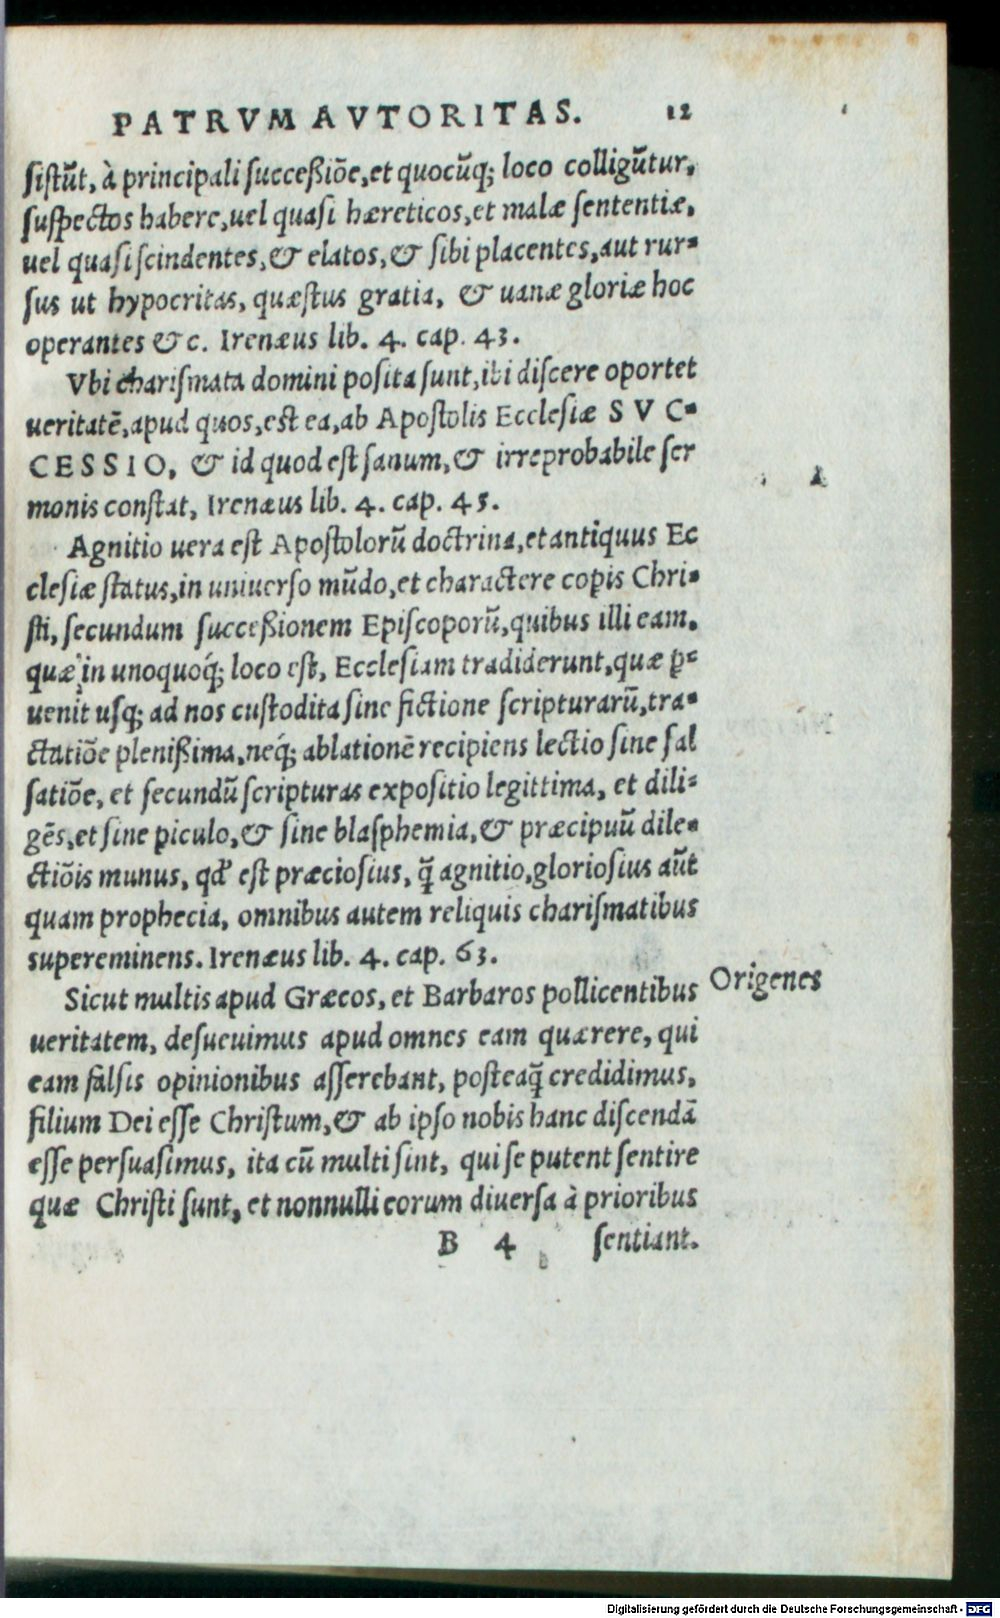 PATRVM AVTORITAS. 12
ſiſtūt, à principali ſucceßiōe, et quocūq; loco colligūtur,
ſuſpectos habere, uel quaſi hæreticos, et malæ ſententiæ,
uel quaſi ſcindentes, & elatos, & ſibi placentes, aut rur-
ſus ut hypocritas, quæſtus gratia, & uanæ gloriæ hoc
operantes &c. Irenæus lib. 4. cap. 43.
Vbi chariſmata domini poſita ſunt, ibi diſcere oportet
ueritatē, apud quos, est ea, ab Apoſtolis Eccleſiæ S V C-
CESSIO, & id quod eſt ſanum, & irreprobabile ſer
monis conſtat, Irenæus lib. 4. cap. 45.
Agnitio uera eſt Apoſtolorū doctrina, et antiquus Ec
cleſiæ ſtatus, in uniuerſo mūdo, et charactere copis Chri-
ſti, ſecundum ſucceßionem Epiſcoporū, quibus illi eam,
quæ in unoquoq́; loco eſt, Eccleſiam tradiderunt, quæ ꝑ-
uenit uſq; ad nos cuſtodita ſine fictione ſcripturarū, tra-
ctatiōe plenißima, neq́; ablationē recipiens lectio ſine fal
ſatiōe, et ſecundū ſcripturas expoſitio legittima, et dili-
gēs, et ſine piculo, & ſine blaſphemia, & præcipuū dile-
ctiōis munus, qd' eſt præcioſius, q̃ agnitio, glorioſius aūt
quam prophecia, omnibus autem reliquis chariſmatibus
supereminens. Irenæus lib. 4. cap. 63.
Sicut multis apud Græcos, et Barbaros pollicentibus
Origenes
ueritatem, deſueuimus apud omnes eam quærere, qui
eam falſis opinionibus aſſerebant, poſteaq̃ credidimus,
filium Dei eſſe Chriſtum, & ab ipſo nobis hanc diſcendā
eſſe perſuaſimus, ita cū multi ſint, qui ſe putent ſentire
quæ Chriſti ſunt, et nonnulli eorum diuerſa à prioribus
B 4 ſentiant.
Digitalisierung gefördert durch die Deutsche Forschungsgemeinschaft - DFG